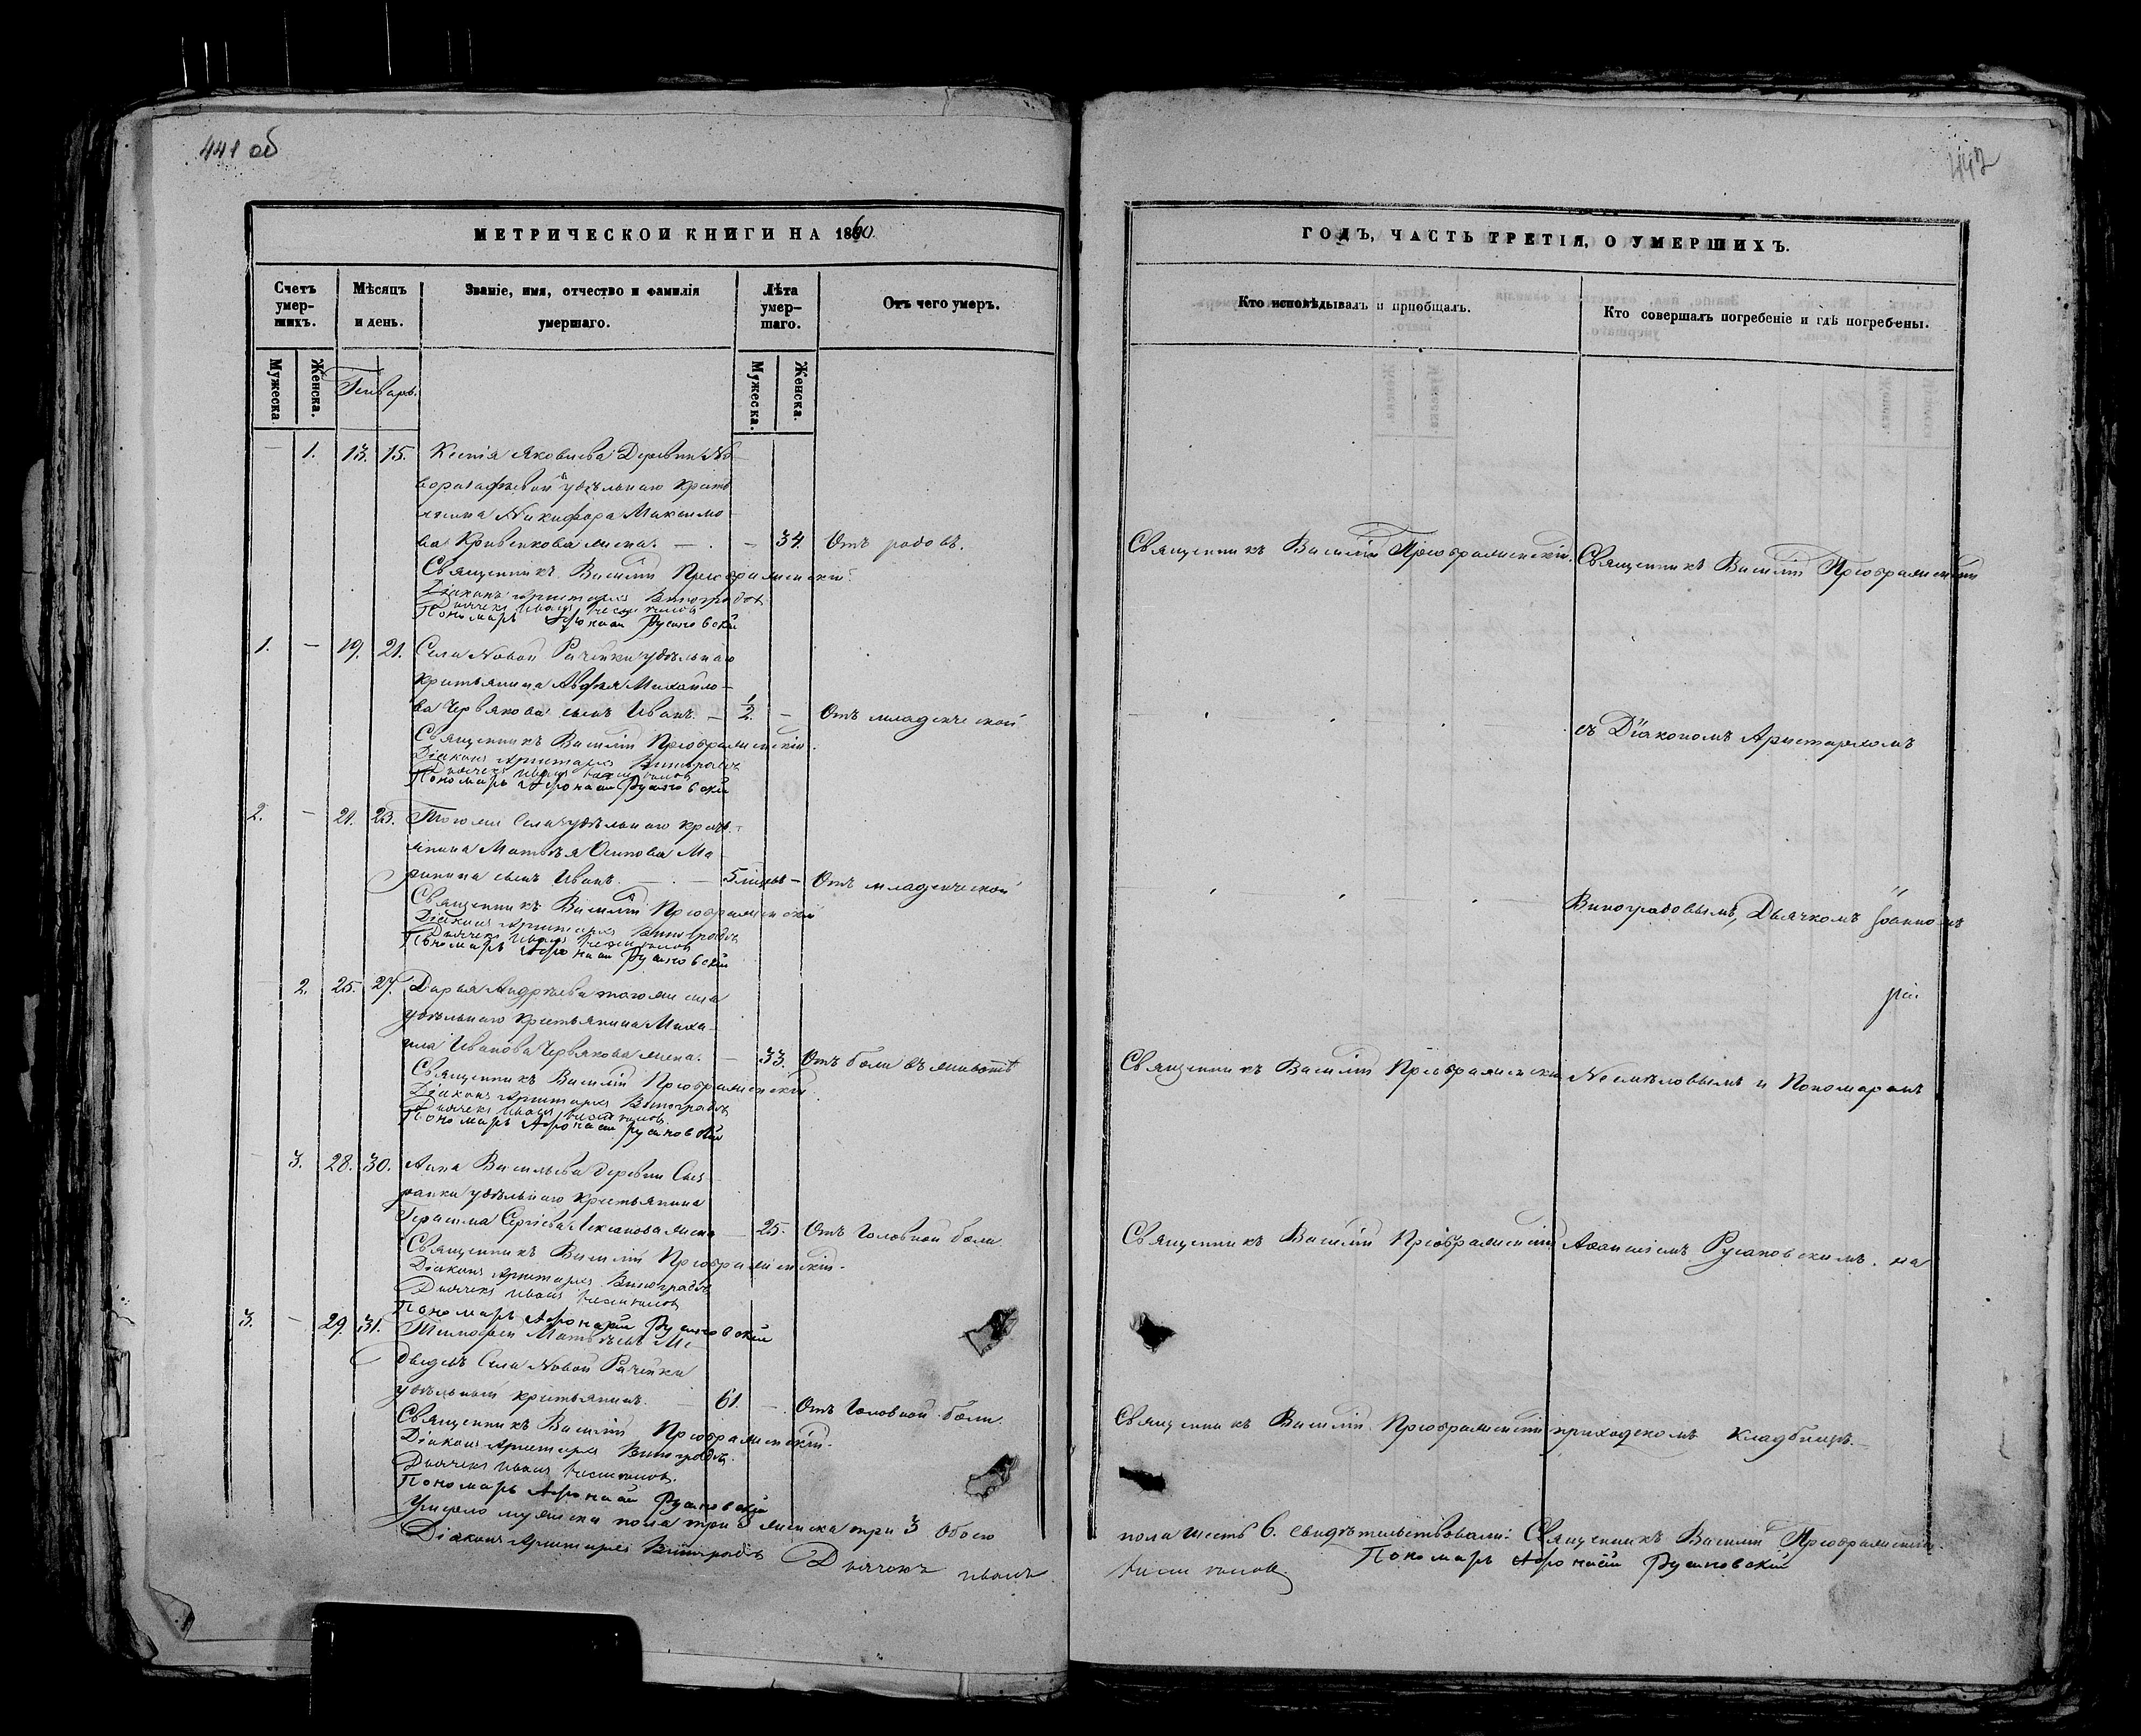 441 об
МЕТРИЧЕСКОЙ КНИГИ НА 1860.
Счетъ умер-шихъ.
Мѣсяцъ и день.
Званіе, имя, отчество и фамилія умершаго.
Лѣта умер-шаго.
Отъ чего умеръ.
Мужеска.
Женска.
Генварь.
Мужеска.
Женска.
— 1. 13. 15. Ксенія Яковлева Деревни Но-
удѣльнаго кресть
янина Никифора Максимо
ва Кривенкова жена. — 34. Отъ родовъ.
Священникъ Василій Преображенскій.
Діаконъ Аристархъ Виноградовъ
Дьячекъ Иванъ
Пономарь Афонасій Русановскій
1. — 19. 21. Села Новой Рачейки удѣльнаго
крестьянина Авдѣя Михайло-
ва Червякова сынъ Иванъ. — 1/2. — Отъ младенческой
Священникъ Василій Преображенскій.
Діаконъ Аристархъ Виноградовъ
Дьячекъ Иванъ
Пономарь Афонасій Русановскій
2. — 21. 23. Того же села удѣльнаго крест-
янина Матвѣя Осипова Ма-
ринина сынъ Иванъ. — 5 — Отъ младенческой
Священникъ Василій Преображенскій
Діаконъ Аристархъ Виноградовъ
Дьячекъ Иванъ
Пономарь Афонасій Русановскій
2. 25. 27. Дарья Андрѣева того же села
удѣльнаго крестьянина Миха-
ила Иванова Червякова жена. — 33. Отъ боли въ животѣ
Священникъ Василій Преображенскій.
Діаконъ Аристархъ Виноградовъ
Дьячекъ Иванъ
Пономарь Афонасій Русановскій
3. 28. 30. Анна Васильева деревни Сыз
ранки удѣльнаго крестьянина
Герасима Сергѣева жена — 25. Отъ Головной боли
Священникъ Василій Преображенскій.
Діаконъ Аристархъ Виноградовъ
Дьячекъ Иванъ
Пономарь Афонасій Русановскій
3. — 29. 31. Тимофей Матвѣевъ Ме-
Села Новой Рачейки
удѣльный крестьянинъ. — 61. — Отъ Головной боли.
Священникъ Василій Преображенскій.
Діаконъ Аристархъ Виноградовъ.
Дьячекъ Иванъ
Пономарь Афонасій Русановскій
Умерло мужеска пола три 3 женска три 3 Обоего
Діаконъ Аристархъ Виноградовъ Дьячокъ Иванъ
442
ГОДЪ, ЧАСТЬ ТРЕТІЯ, О УМЕРШИХЪ.
Кто исповѣдывалъ и пріобщалъ.
Кто совершалъ погребеніе и гдѣ погребены.
Священникъ Василій Преображенскій.
Священникъ Василій Преображенскій
съ Діакономъ Аристархомъ
Виноградовымъ, Дьячкомъ Іоанномъ
Священникъ Василій Преображенскій
Несмѣловымъ и Пономаремъ
Священникъ Василій Преображенскій
Аѳанасіемъ Русановскимъ. на
Священникъ Василій Преображенскій
приходскомъ кладбищѣ.
пола шесть 6. свидѣтельствовали: Священникъ Василій Преображенскій.
Пономарь Афонасій Русановскій